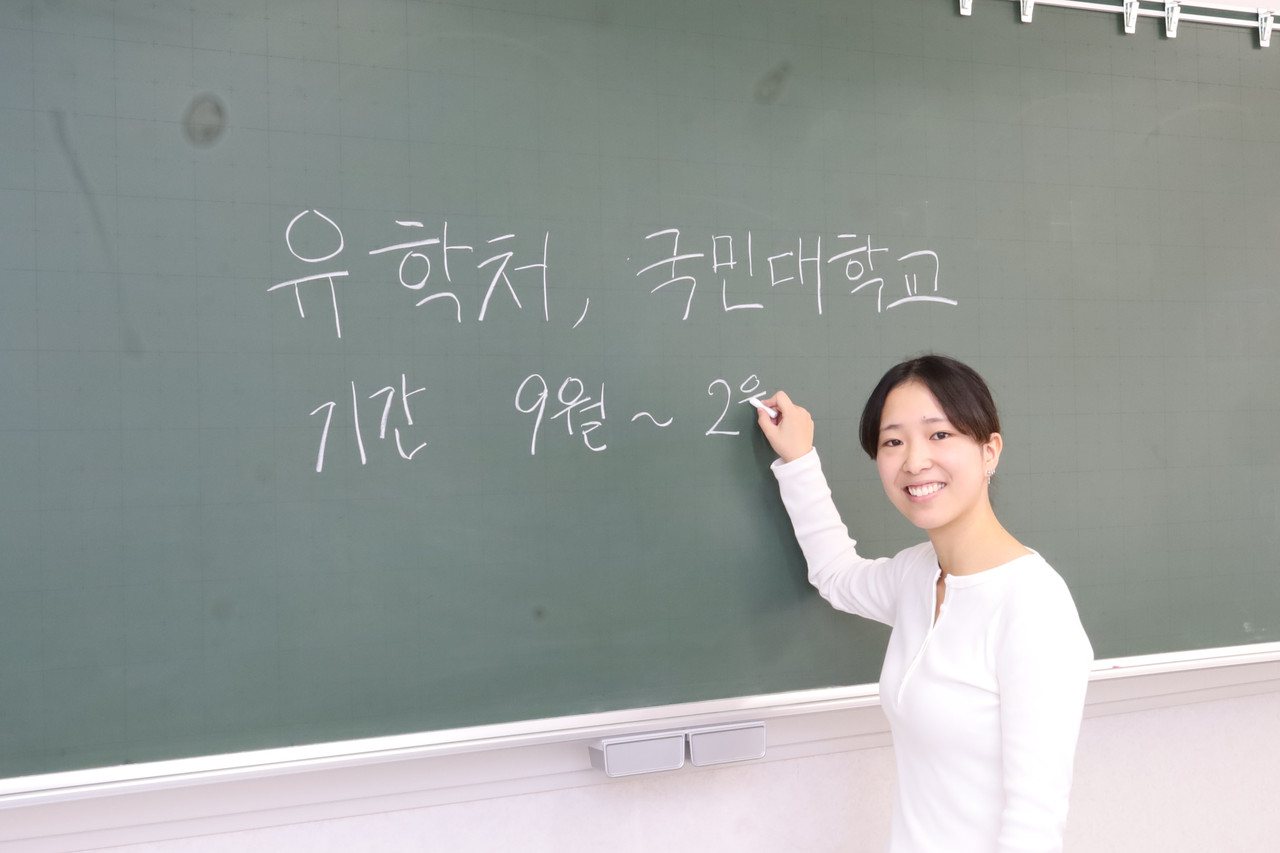 유학처, 국민대학교
기간 9월 ~ 2